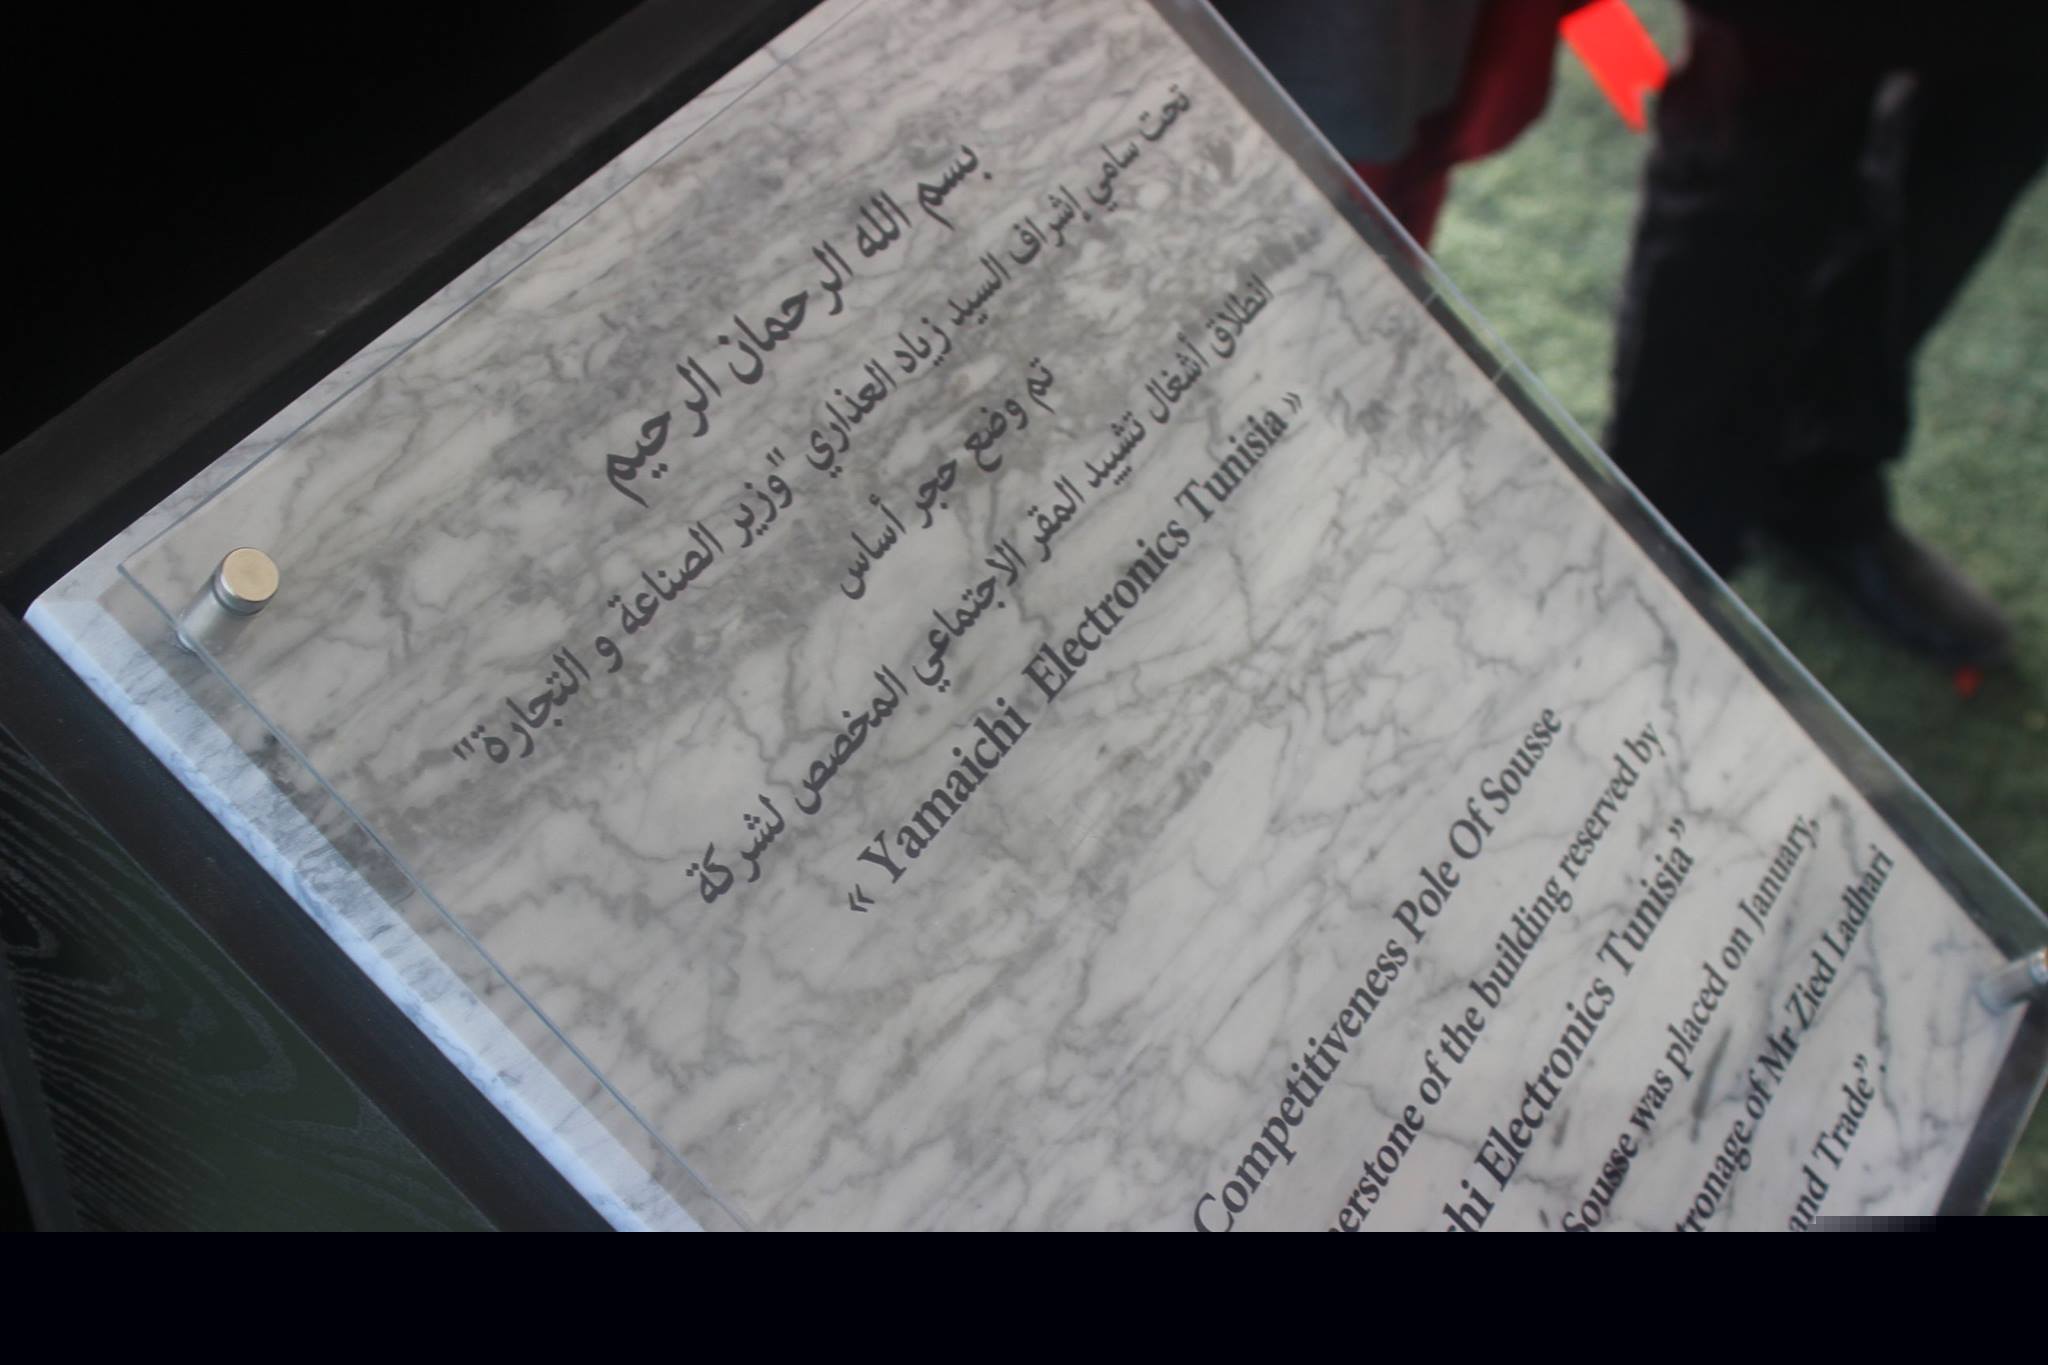 بسم الله الرحمان الرحيم
تحت سامي إشراف السيد زياد العذاري "وزير الصناعة و التجارة"
تم وضع حجر أساس
انطلاق أشغال تشييد المقر الاجتماعي المخصص لشركة
« Yamaichi Electronics Tunisia »
Competitiveness Pole Of Sousse
of the building reserved by
Electronics Tunisia”
Sousse was placed on January,
of Mr Zied Ladhari
and Trade”.